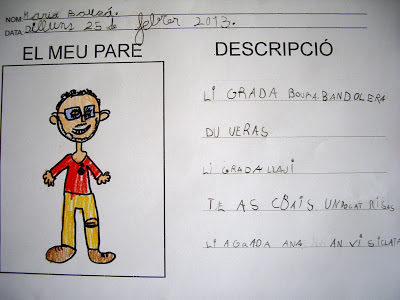 NOM Maria Bouzá.
DATA dilluns 25 de febrer 2013.
EL MEU PARE
DESCRIPCIÓ
LI GRADA BOUMA BANDOLERA
DU UERAS
LI GRADA LLAJI
TE AS CBAIS UN POCAT RISAS
LI AGGADA ANA AN VISICLATA